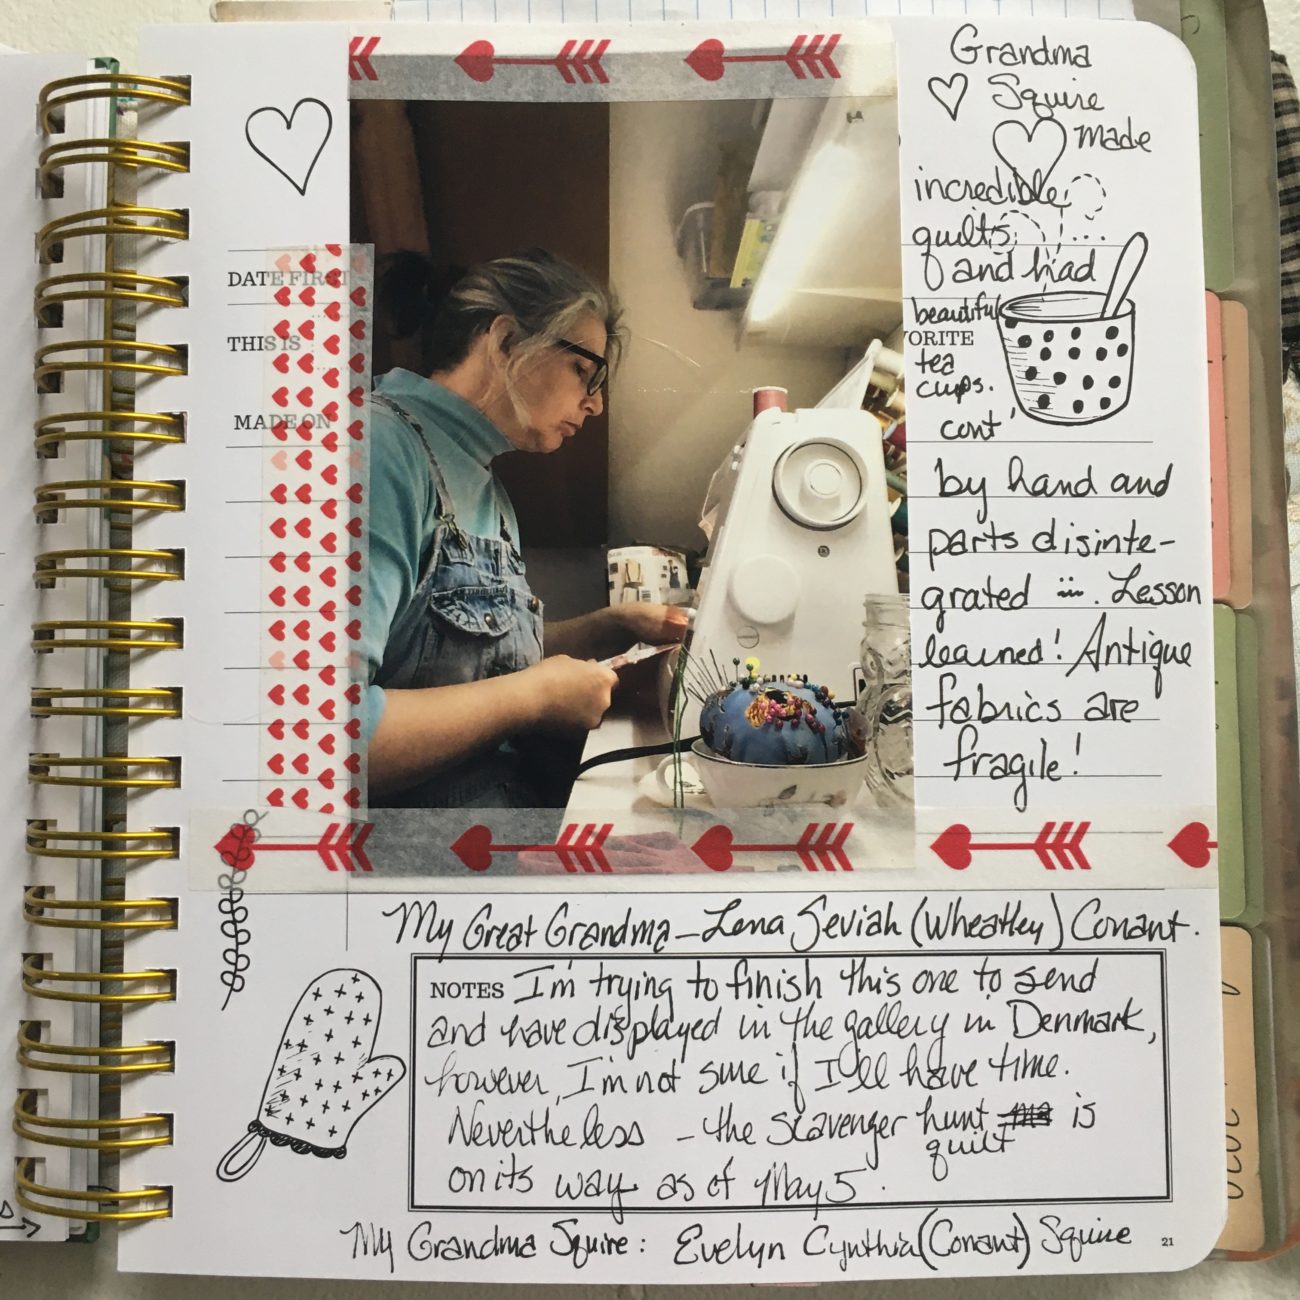 Grandma
Squire
made
incredible
quilts
and had
beautiful
VORITE
tea
cups.
cont'
DATE FIRST
THIS IS
MADE ON
by hand and
parts disinte-
grated . Lesson
learned! Antique
fabrics are
fragile!
My Great Grandma - Lena Seviah (Wheatley) Conant.
NOTES I'm trying to finish this one to send
and have displayed in the gallery in Denmark,
however, I'm not sure if I'll have time.
Nevertheless - the scavenger hunt is
quilt
on its way as of May 5.
My Grandma Squire: Evelyn Cynthia (Conant) Squire
21